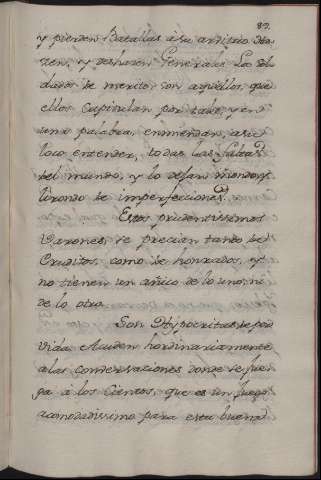 89.
y pierden Batallas à su arvitrio Ha-
zen, y deshazen Generales. Los Sol-
dados de merito, son aquellos, que
ellos Capitulan por tales, y en
una palabra, enmiendan, a su
loco entender, todas las faltas
del mundo, y lo dejan mondo y
lirondo de imperfecciones.
Estos prudentissimos
Varones se precian tanto de
Eruditos, como de honrados, y
no tienen un añico de lo uno, ni
de lo otro.
Son Hypocritas de por
vida Acuden hordinariamente
a las conversaciones donde se jue-
ga à los Cientos, que es un juego
acomodadissimo para esta buena